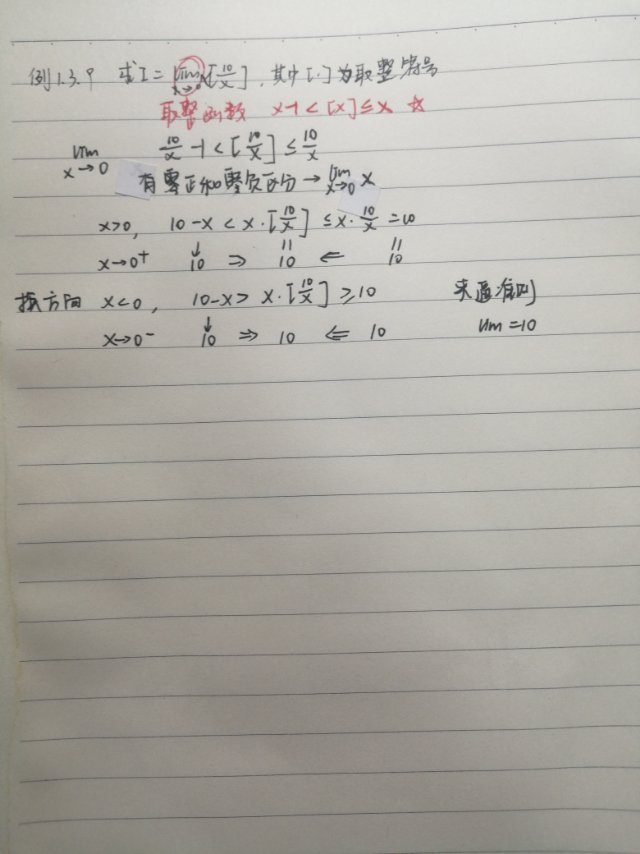 例1.3.9 求I=lim x→0 x[10/x],其中[·]为取整符号
取整函数 x-1<[x]≤x ☆
lim x→0 10/x -1<[10/x]≤10/x
有正和负区分→lim x→0 x
x>0, 10-x<x·[10/x]≤x·10/x=10
x→0+ ↓10 ⇒ 10 ⇐ 10
换方向 x<0, 10-x>x·[10/x]≥10 夹逼准则
x→0- ↓10 ⇒ 10 ⇐ 10 lim=10